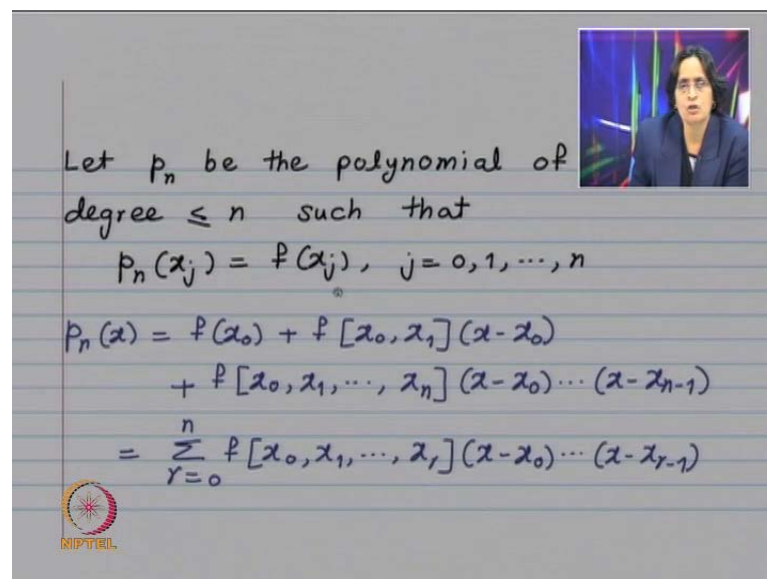 Let pₙ be the polynomial of
degree ≤ n such that
pₙ(xⱼ) = f(xⱼ), j = 0, 1, ⋯, n
pₙ(x) = f(x₀) + f[x₀, x₁](x - x₀)
+ f[x₀, x₁, ⋯, xₙ](x - x₀) ⋯ (x - xₙ₋₁)
n
= Σ f[x₀, x₁, ⋯, xᵣ](x - x₀) ⋯ (x - xᵣ₋₁)
r = 0
NPTEL